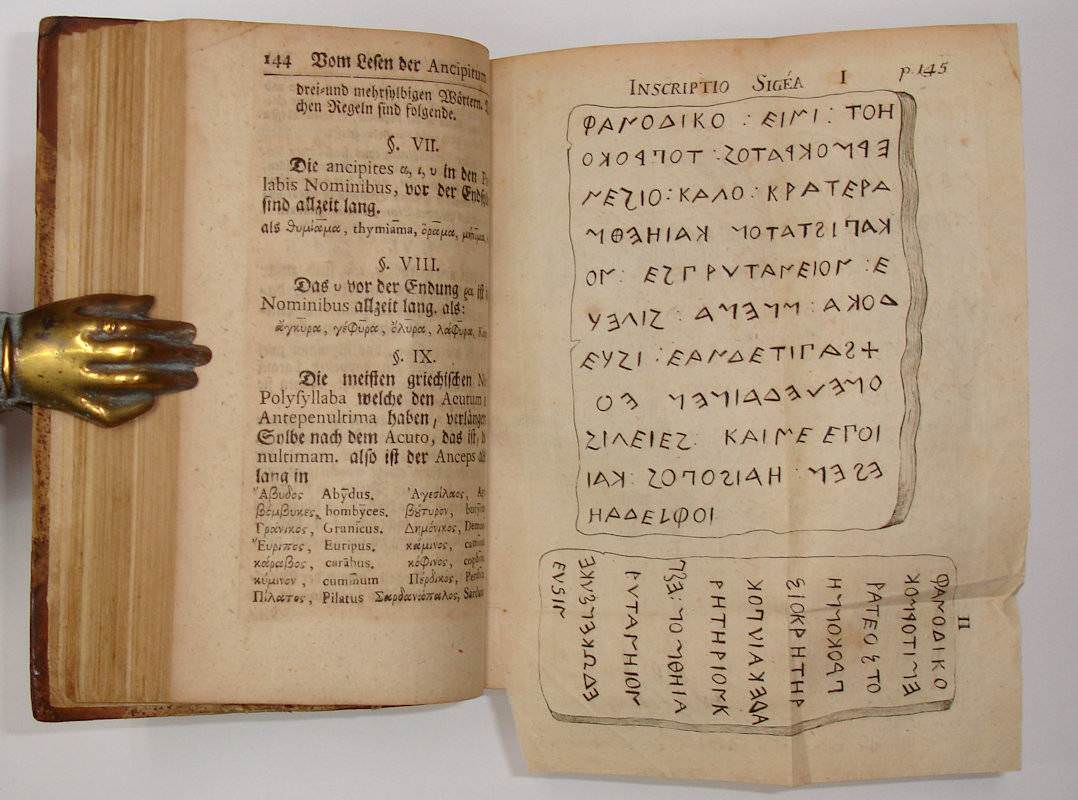 144 Vom Lesen der Ancipitum
drei=und mehrsylbigen Wörtern.
chen Regeln sind folgende.
§. VII.
Die ancipites α, ι, υ in den
labis Nominibus, vor der
sind allzeit lang.
als θυμίαμα, thymiama, ὅραμα,
§. VIII.
Das υ vor der Endung ρα ist
Nominibus allzeit lang. als:
ἄγκυρα, γέφυρα, ὄλυρα, λάφυρα,
§. IX.
Die meisten griechischen
Polysyllaba welche den Acutum
Antepenultima haben, verlängern
Sylbe nach dem Acuto, das ist,
nultimam. also ist der Anceps
lang in
Ἄβυδος Abȳdus. Ἀγεσίλαος,
βόμβυκες, bombȳces. βούτυρον,
Γρανικος, Granīcus. Δημόνικος,
Ἔυριπος, Euripus. κάμινος,
κάραβος, carābus. κόφινος,
κύμινον, cuminum Πέρδικος,
Πίλατος, Pilatus Σαρδανάπαλος,
INSCRIPTIO SIGÉA I p. 145
ΦΑΝΟΔΙΚΟ : ΕΙΜΙ : ΤΟΗ
ΕΡΜΟΚΡΑΤΟΣ : ΤΟΠΡΟΚΟ
ΝΕΣΙΟ : ΚΑΛΟ : ΚΡΑΤΕΡΑ
ΚΑΠΙΣΤΑΤΟΝ ΚΑΙΗΕΘΜ
ΟΝ : ΕΣΠΡΥΤΑΝΕΙΟΝ : Ε
ΔΟΚΑ : ΜΝΕΜΑ : ΣΙΛΕΥ
ΕΥΣΙ : ΕΑΝΔΕΤΙΠΑΣ+
ΟΜΕΛΕΔΑΙΝΕΜ ΕΟ
ΣΙΛΕΙΕΣ : ΚΑΙΜΕ ΕΠΟΙ
ΕΣΕΝ : ΗΑΙΣΟΠΟΣ : ΚΑΙ
ΗΑΔΕΛΦΟΙ
II
ΦΑΝΟΔΙΚΟ
ΕΜΙΤΟΡΜΟΚ
ΡΑΤΕΟΣΤΟ
ΠΡΟΚΟΝΝΗ
ΣΙΟΚΡΗΤΗΡ
ΑΔΕΚΑΙΥΠΟΚ
ΡΗΤΗΡΙΟΝΚ
ΑΙΗΘΜΟΝ : ΕΣΠ
ΡΥΤΑΝΗΙΟΝ
ΕΔΩΚΕΝΣΥΚΕ
ΕΥΣΙΝ